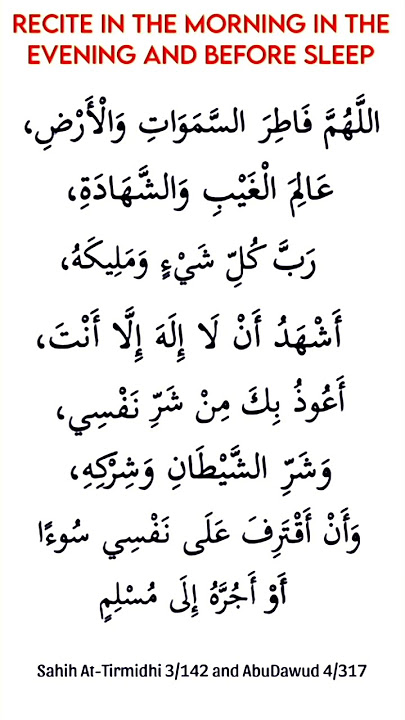 RECITE IN THE MORNING IN THE
EVENING AND BEFORE SLEEP
اللَّهُمَّ فَاطِرَ السَّمَوَاتِ وَالْأَرْضِ،
عَالِمَ الْغَيْبِ وَالشَّهَادَةِ،
رَبَّ كُلِّ شَيْءٍ وَمَلِيكَهُ،
أَشْهَدُ أَنْ لَا إِلَهَ إِلَّا أَنْتَ،
أَعُوذُ بِكَ مِنْ شَرِّ نَفْسِي،
وَشَرِّ الشَّيْطَانِ وَشِرْكِهِ،
وَأَنْ أَقْتَرِفَ عَلَى نَفْسِي سُوءًا
أَوْ أَجُرَّهُ إِلَى مُسْلِمٍ
Sahih At-Tirmidhi 3/142 and AbuDawud 4/317